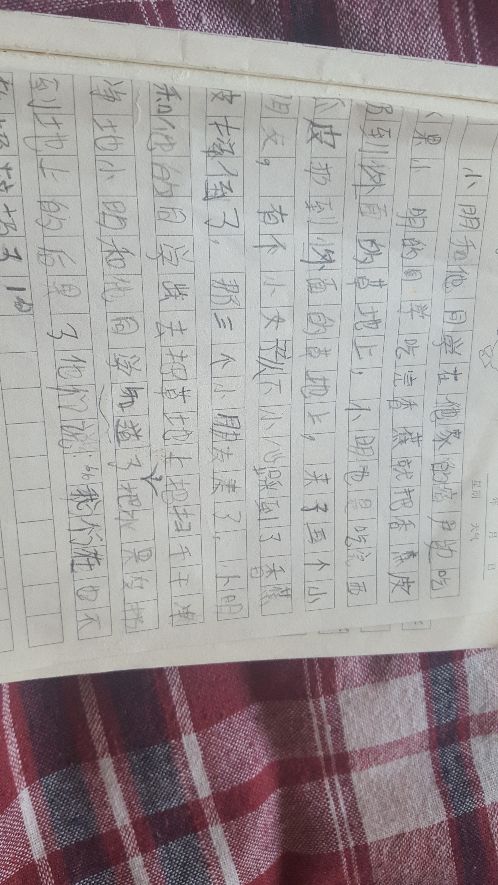 星期 天气
小明和他同学在他家的窗户边吃
水果小明的同学吃完香蕉就把香蕉皮
扔到外面的草地上,小明也是吃完西
瓜皮扔到外面的草地上,来了三个小
朋友,有个小女孩不小心踩到了香蕉
皮摔倒了,那三个小朋友走了,小明
和他的同学出去把草地上把扫干干净
净地小明和他同学知道了把水果皮扔
到地上的后果了他们说:“我们在也不